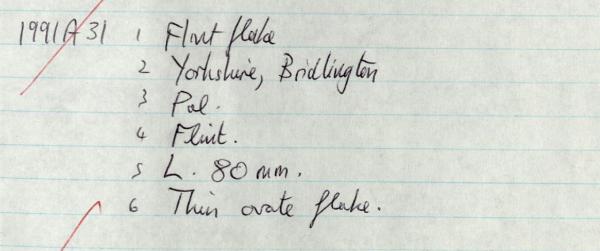 1991A31 1 Flint flake
2 Yorkshire, Bridlington
3 Pal.
4 Flint.
5 L. 80 mm.
6 Thin ovate flake.